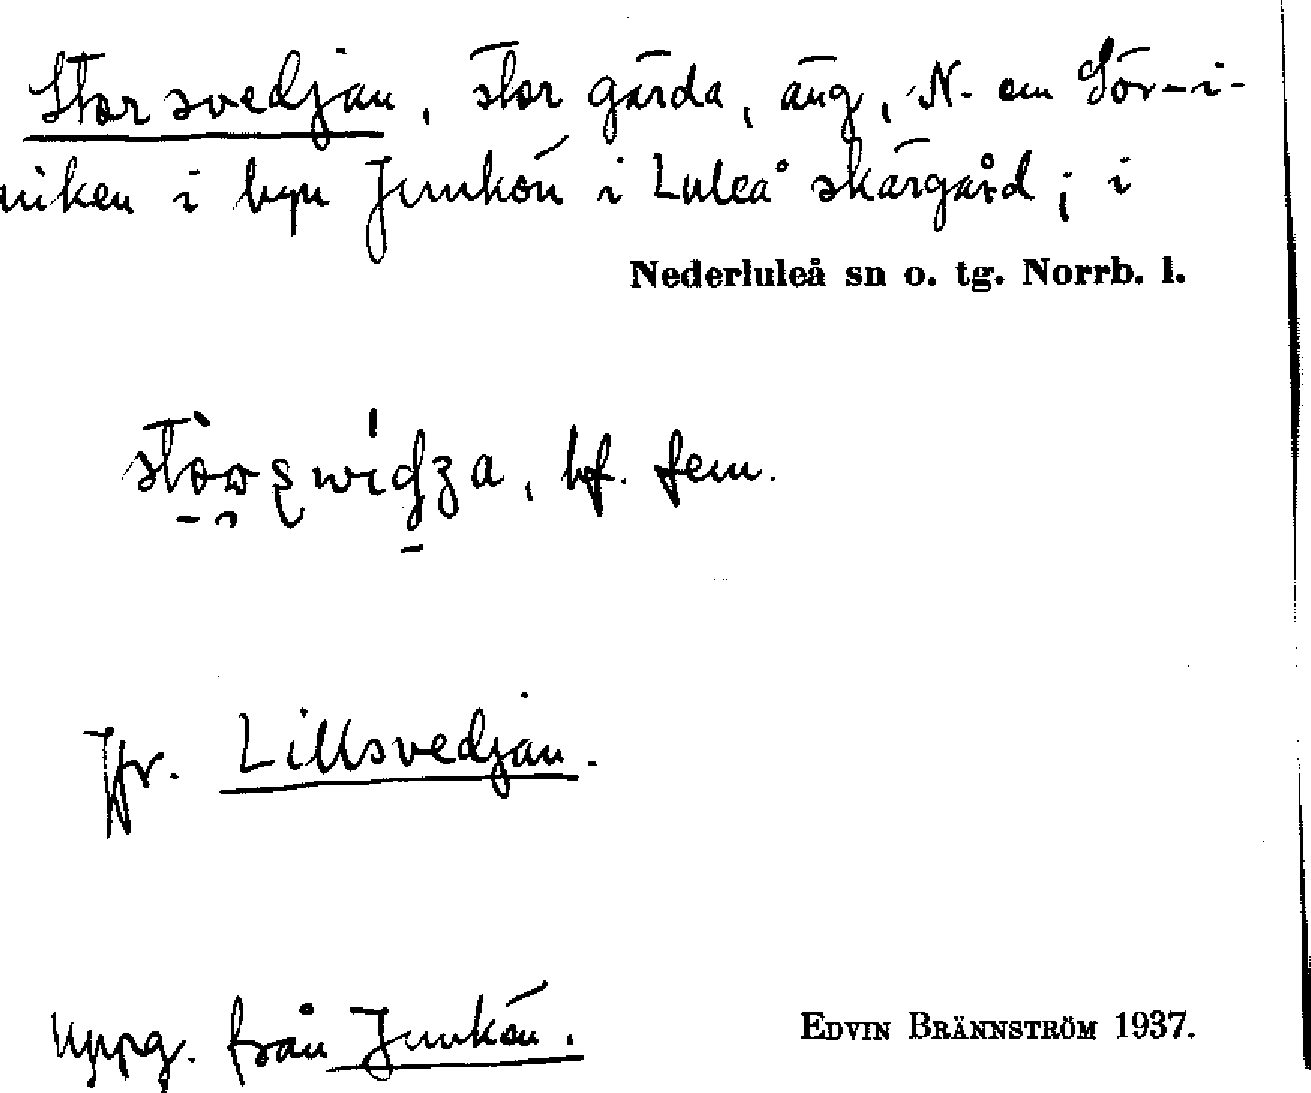 Storsvedjan, stor gärda, äng, N. om Sör-i-
niken i byn Junkön i Luleå skärgård; i
Nederluleå sn o. tg. Norrb. l.
bf. fem.
Jfr. Lillsvedjan.
Uppg. från Junkön.
EDVIN BRÄNNSTRÖM 1937.